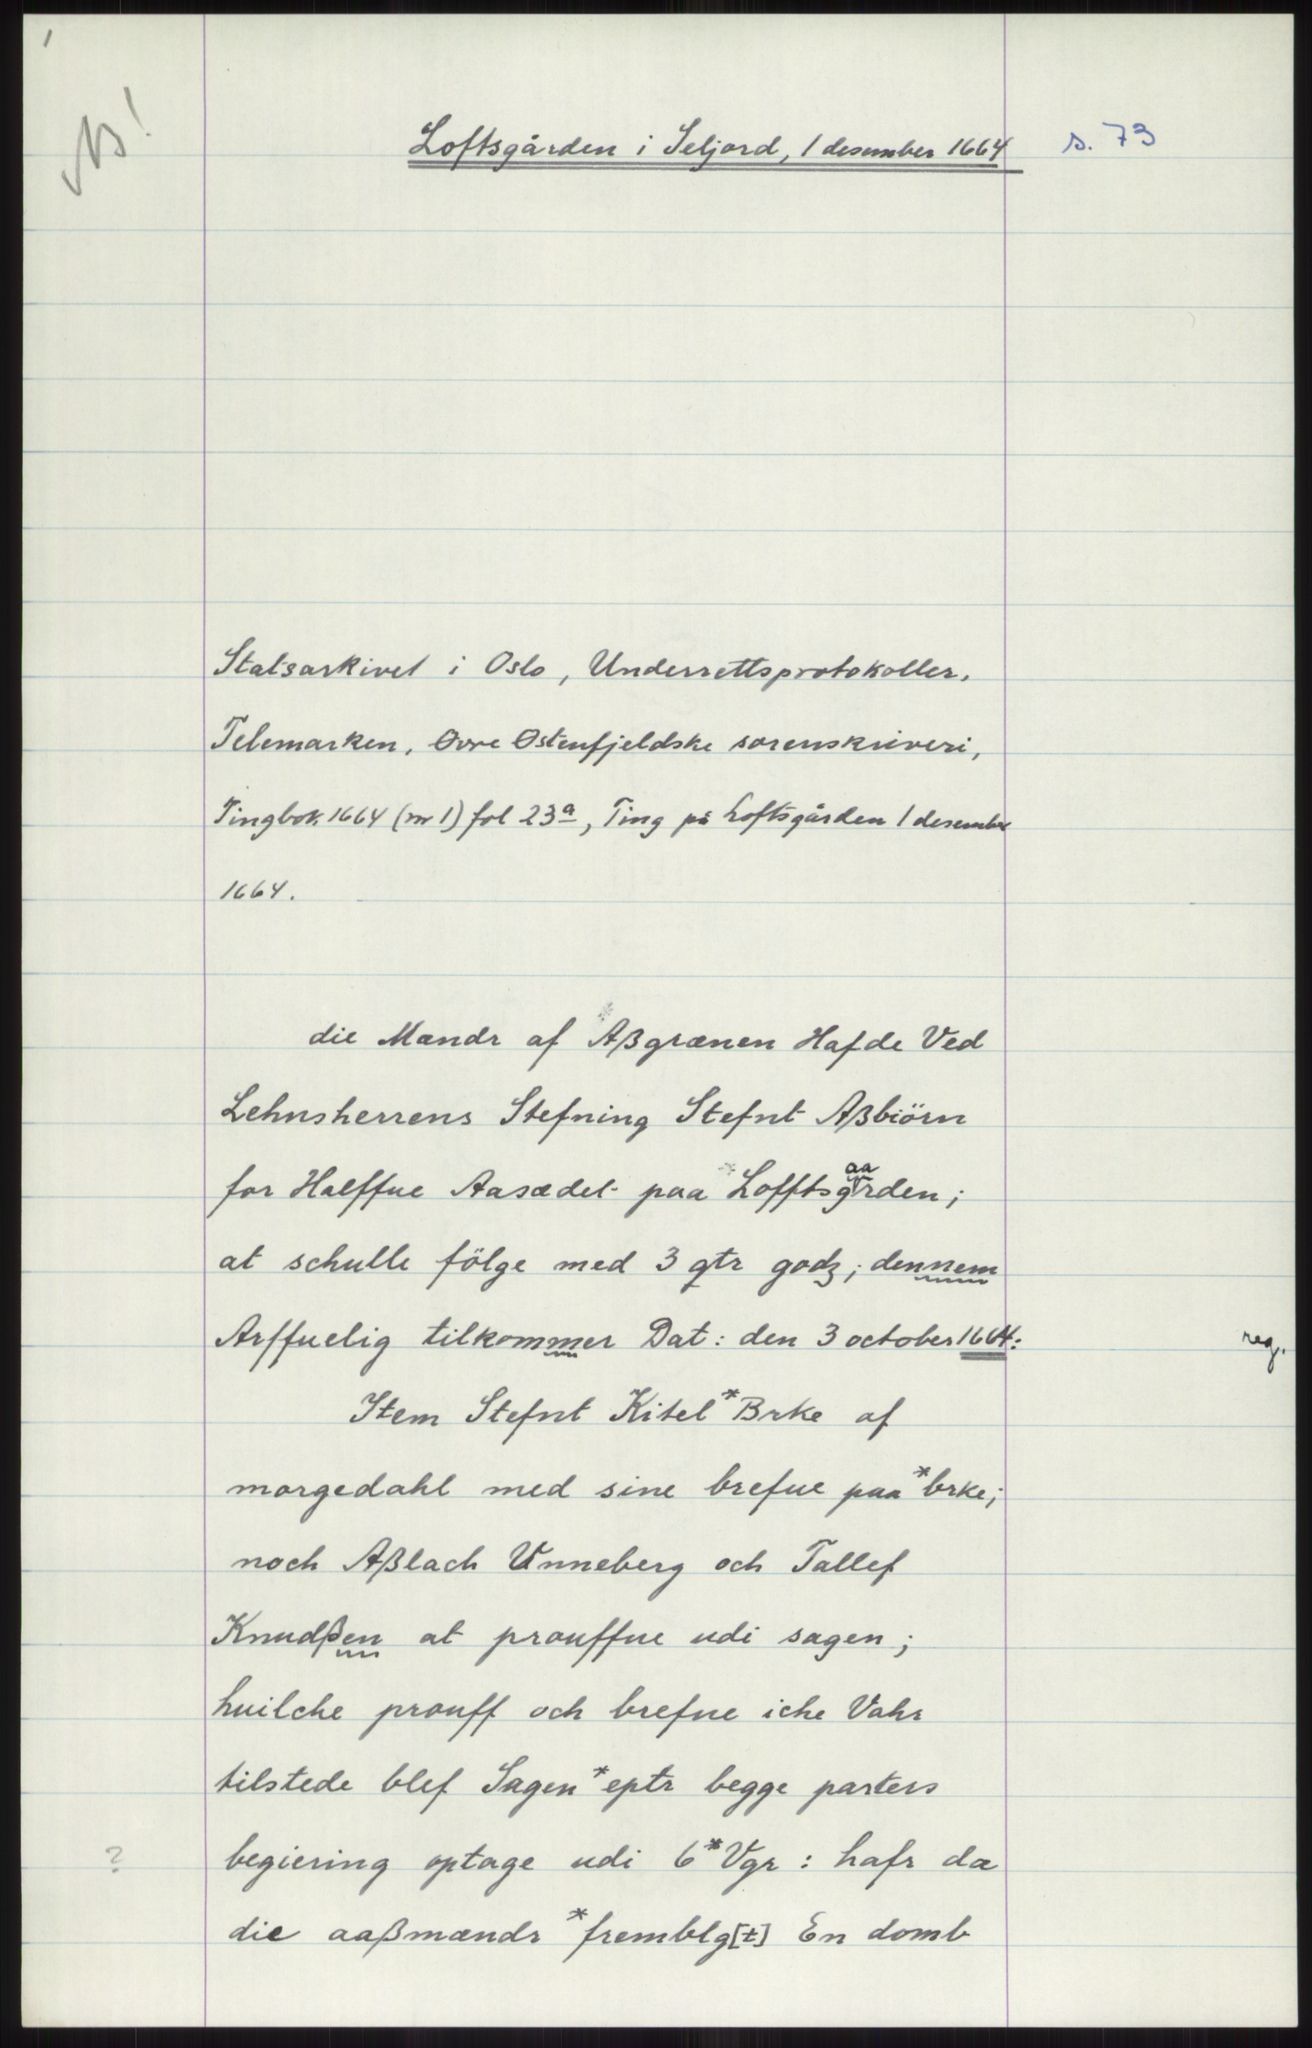 1
NB!
Loftsgården i Seljord, 1 desember 1664 s. 73
Statsarkivet i Oslo, Underrettsprotokoller,
Telemarken, Øvre Østenfjeldske sorenskriveri,
Tingbok 1664 (nr 1) fol 23a, Ting på Loftsgården 1 desember
1664.
die Mændr af *Aßgrænen Hafde Ved
Lehnsherrens Stefning Stefnt Aßbiörn
for Halffue Aasædet paa *Lofftsgaarden;
at schulle fölge med 3 qtr godz; dennem
Arffuelig tilkommer Dat: den 3 october 1664:
reg.
Item Stefnt Kitel *Brke af
morgedahl med sine brefue paa *brke;
noch Aßlach Unneberg och Tallef
Knudßen at prouffue udi sagen;
huilche prouff och brefue iche Vahr
tilstede blef Sagen *eptr begge parters
? begiering optage udi 6 *Vgr: hafr da
die aaßmændr *fremblg[t] En domb